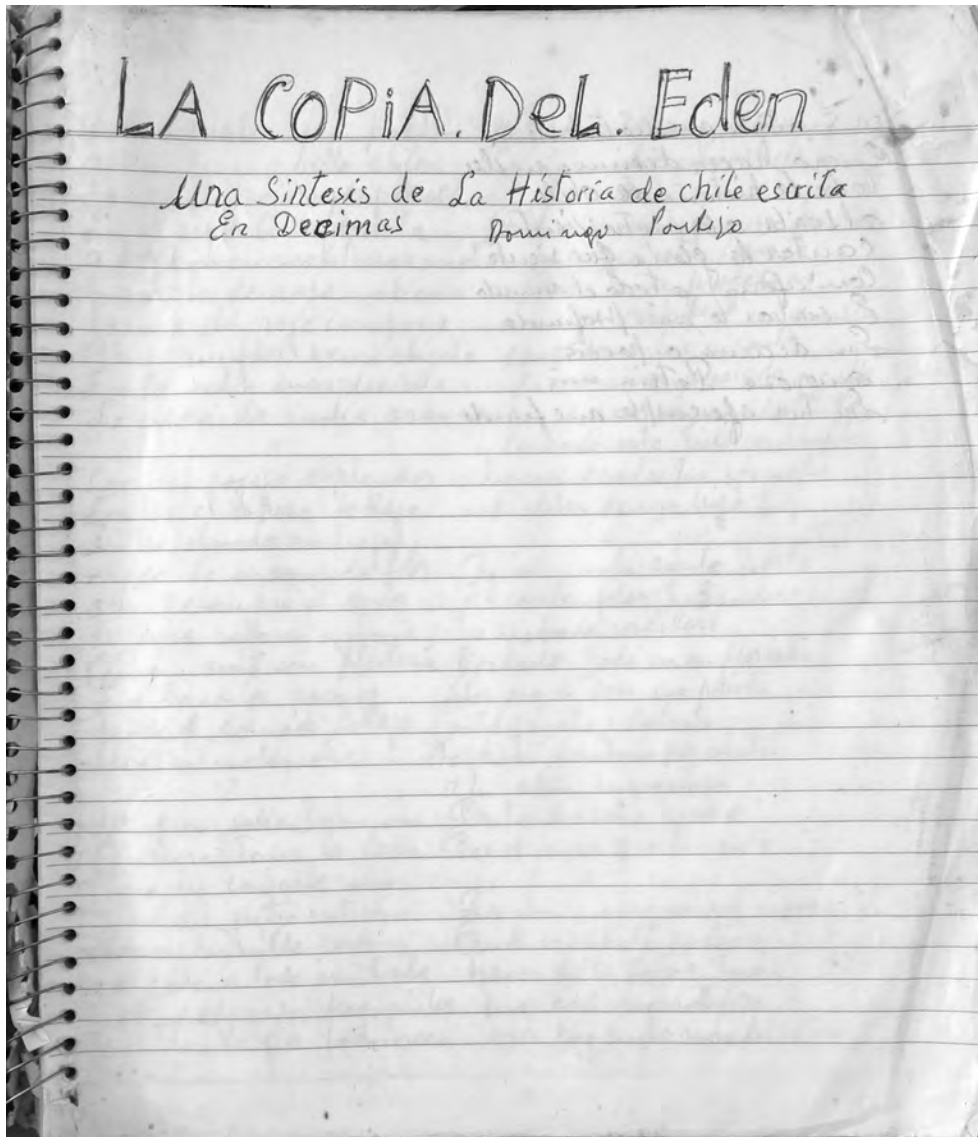 LA CoPiA. DeL. Eden
Una Sintesis de La Historia de chile escrita
En Decimas Domingo Pontigo